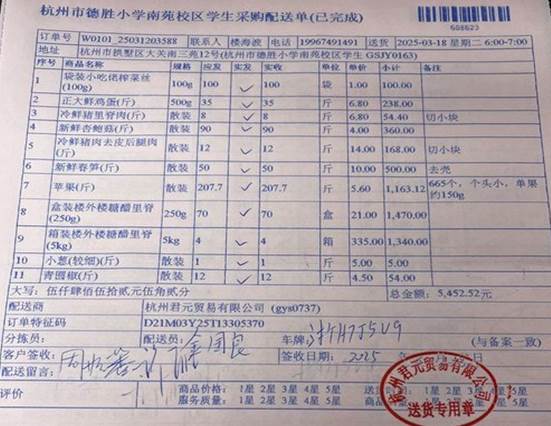 杭州市德胜小学南苑校区学生采购配送单(已完成)
608623
订单号 W0101_25031203588 联系人 楼海波 电话 19967491491 送货 2025-03-18 星期二 6:00-7:00
地址 杭州市拱墅区大关南三苑12号(杭州市德胜小学南苑校区学生 GSJY0163)
序号 名称 规格 应发 实发 实收 单位 单价 小计 备注
1 袋装小吃佬榨菜丝(100g) 100g 100 ✓ 100 袋 1.00 100.00
2 正大鲜鸡蛋(斤) 500g 35 ✓ 35 斤 6.80 238.00
3 冷鲜猪里脊肉(斤) 散装 8 ✓ 8 斤 6.80 54.40 切小块
4 新鲜杏鲍菇(斤) 散装 90 ✓ 90 斤 4.00 360.00
5 冷鲜猪肉去皮后腿肉(斤) 散装 12 ✓ 12 斤 14.00 168.00 切小块
6 新鲜春笋(斤) 散装 50 ✓ 50 斤 10.00 500.00 去壳
7 苹果(斤) 散装 207.7 ✓ 207.7 斤 5.60 1,163.12 665个，个头小，单果约150g
8 盒装楼外楼糖醋里脊(250g) 250g 70 ✓ 70 盒 21.00 1,470.00
9 箱装楼外楼糖醋里脊(5kg) 5kg 4 ✓ 4 箱 335.00 1,340.00
10 小葱(较细)(斤) 散装 1 ✓ 1 斤 5.00 5.00
11 青圆椒(斤) 散装 12 ✓ 12 斤 4.50 54.00
大写：伍仟肆佰伍拾贰元伍角贰分 总金额：5,452.52元
配送商 杭州君元贸易有限公司 (gys0737)
订单特征码 D21M03Y25T13305370
分拣员： 配送员： 车牌： (与备案一致)
客户签收： 签收日期： 2025
配送留言：
评价 商品价格： 1星 2星 3星 4星 5星 1星 2星 3星 4星 5星
服务质量： 1星 2星 3星 4星 5星
杭州君元贸易有限公司
送货专用章